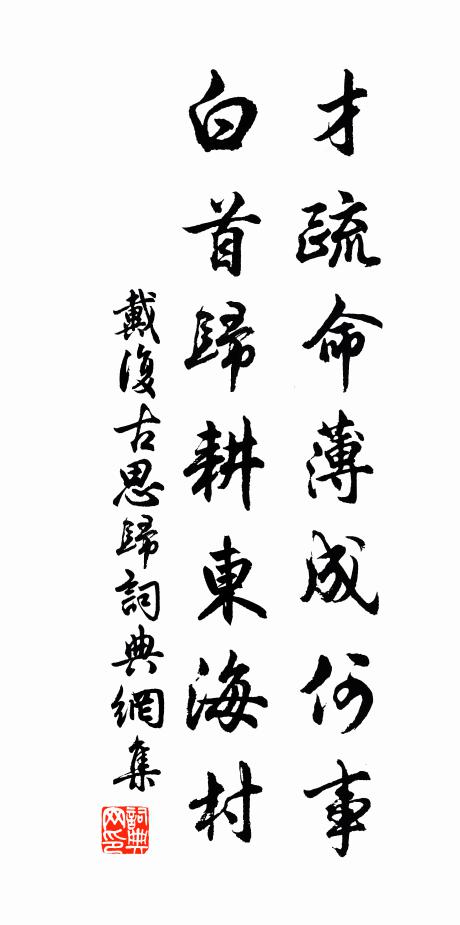 才疏命薄成何事
白首歸耕東海村
戴復古思歸詞典網集
詞典網印